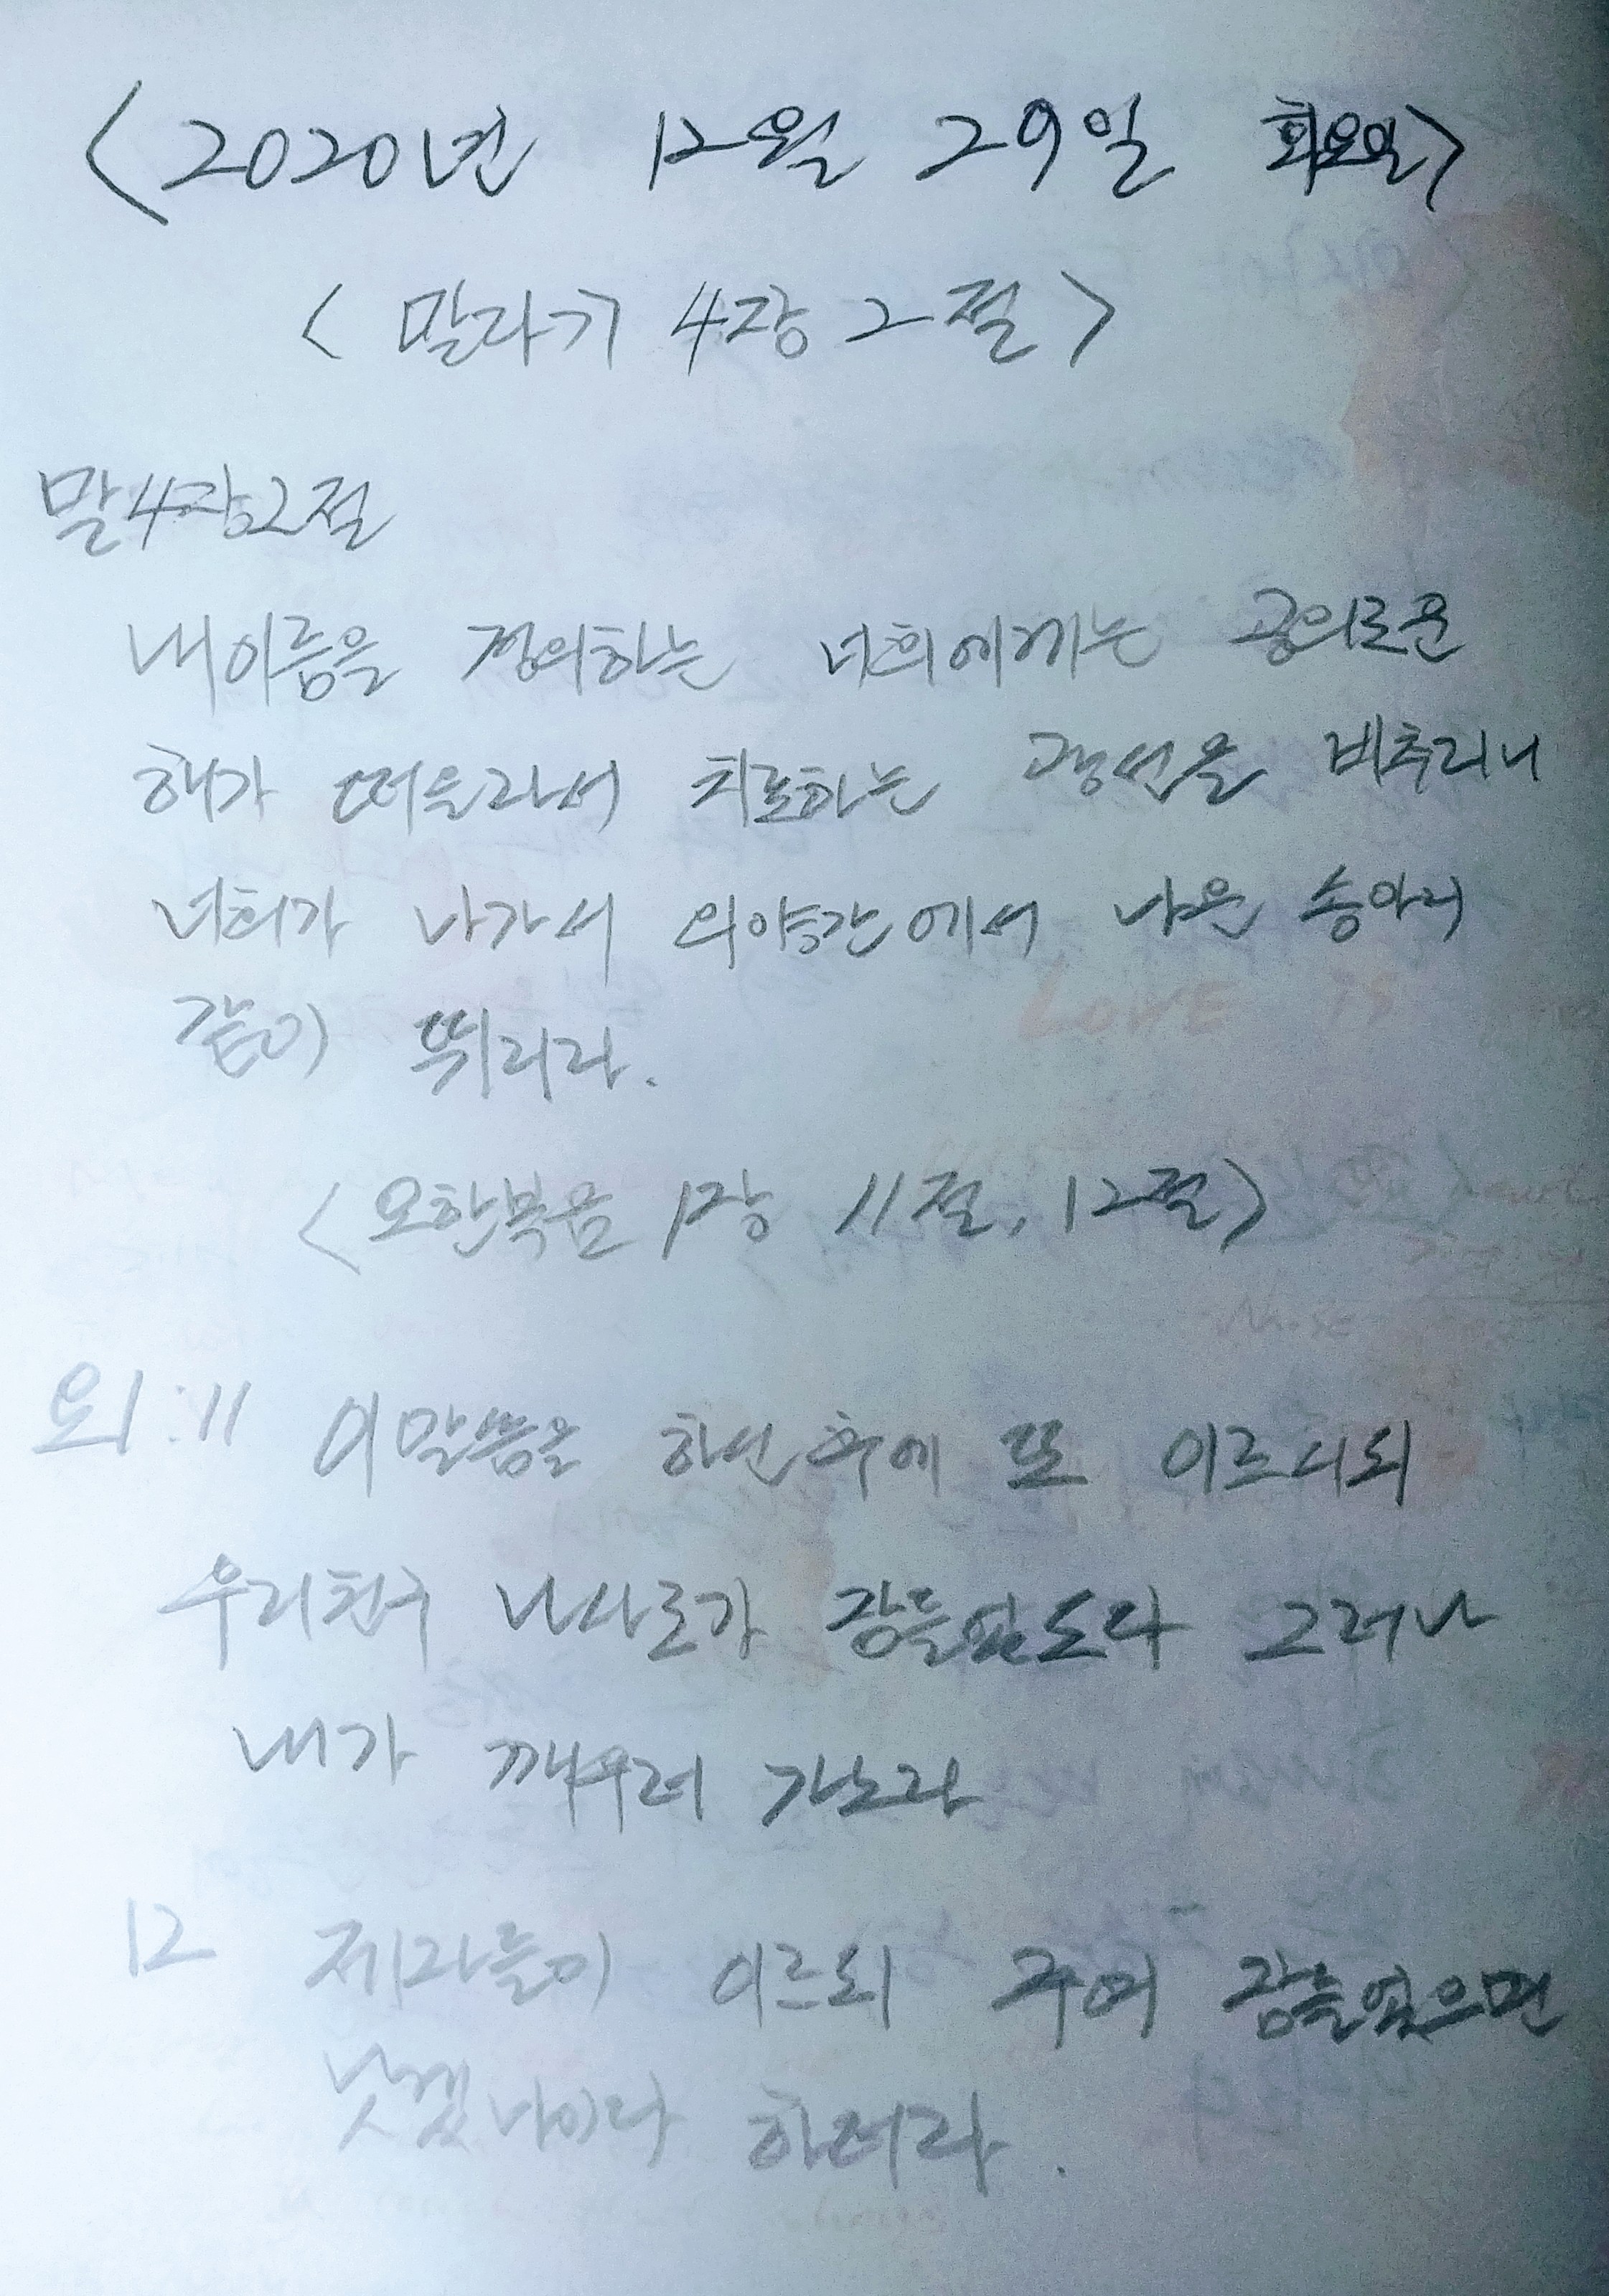 <2020년 12월 29일 화요일>
<말라기 4장 2절>
말4장2절
내이름을 경외하는 너희에게는 공의로운
해가 떠올라서 치료하는 광선을 비추리니
너희가 나가서 외양간에서 나온 송아지
같이 뛰리라.
<요한복음 1장 11절, 12절>
요1:11 이말씀을 하신후에 또 이르시되
우리친구 나사로가 잠들었도다 그러나
내가 깨우러 가노라
12 제자들이 이르되 주여 잠들었으면
낫겠나이다 하더라.
LOVE is